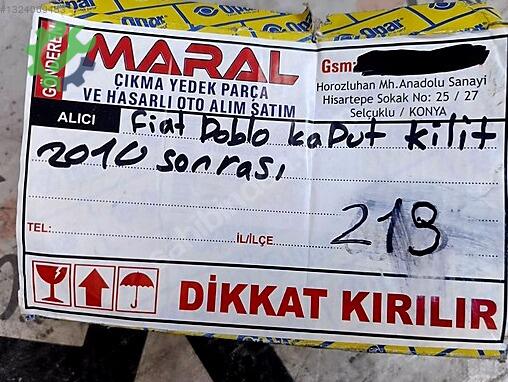 #1324009483
Opar
Opar
GÖNDEREN
MARAL
ÇIKMA YEDEK PARÇA
VE HASARLI OTO ALIM SATIM
Gsm:
Horozluhan Mh.Anadolu Sanayi
Hisartepe Sokak No: 25 / 27
Selçuklu / KONYA
ALICI
Fiat Doblo kaput kilit
2010 sonrası
219
TEL:
İL/İLÇE
DİKKAT KIRILIR